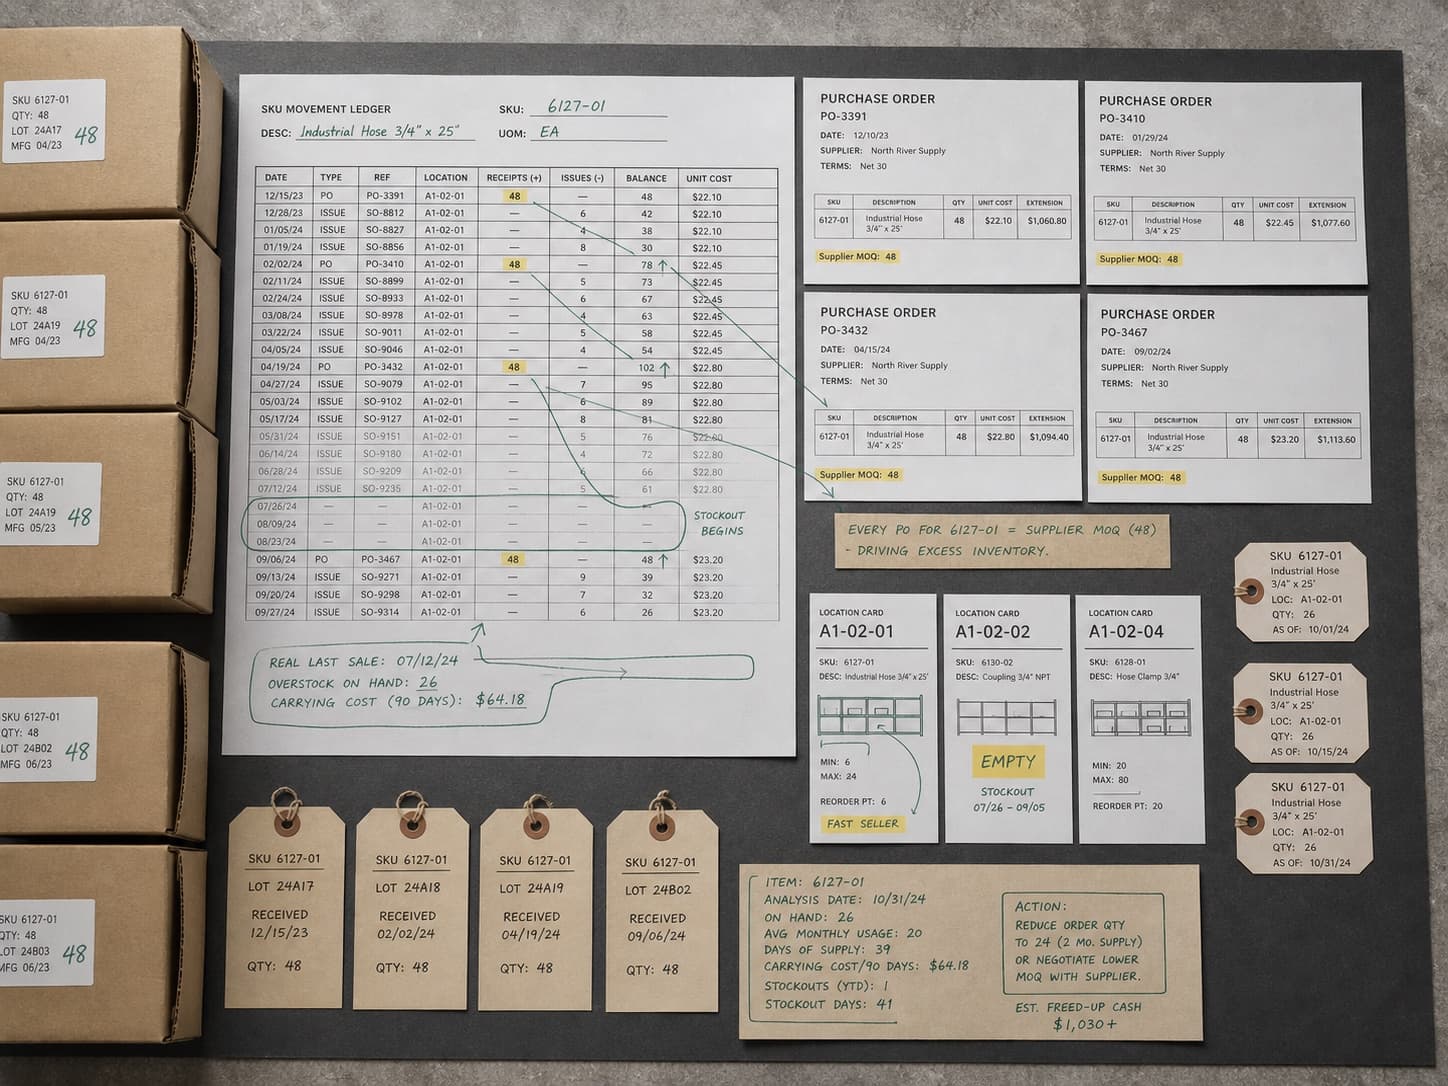 SKU 6127-01
QTY: 48
LOT 24A17
MFG 04/23
48
SKU 6127-01
QTY: 48
LOT 24A19
MFG 04/23
48
SKU 6127-01
QTY: 48
LOT 24A19
MFG 05/23
48
SKU 6127-01
QTY: 48
LOT 24B02
MFG 06/23
48
SKU 6127-01
QTY: 48
LOT 24B03
MFG 06/23
48
SKU MOVEMENT LEDGER SKU: 6127-01
DESC: Industrial Hose 3/4" x 25" UOM: EA
DATE TYPE REF LOCATION RECEIPTS (+) ISSUES (-) BALANCE UNIT COST
12/15/23 PO PO-3391 A1-02-01 48 — 48 $22.10
12/28/23 ISSUE SO-8812 A1-02-01 — 6 42 $22.10
01/05/24 ISSUE SO-8827 A1-02-01 — 4 38 $22.10
01/19/24 ISSUE SO-8856 A1-02-01 — 8 30 $22.10
02/02/24 PO PO-3410 A1-02-01 48 — 78 ↑ $22.45
02/11/24 ISSUE SO-8899 A1-02-01 — 5 73 $22.45
02/24/24 ISSUE SO-8933 A1-02-01 — 6 67 $22.45
03/08/24 ISSUE SO-8978 A1-02-01 — 4 63 $22.45
03/22/24 ISSUE SO-9011 A1-02-01 — 5 58 $22.45
04/05/24 ISSUE SO-9046 A1-02-01 — 4 54 $22.45
04/19/24 PO PO-3432 A1-02-01 48 — 102 ↑ $22.80
04/27/24 ISSUE SO-9079 A1-02-01 — 7 95 $22.80
05/03/24 ISSUE SO-9102 A1-02-01 — 6 89 $22.80
05/17/24 ISSUE SO-9127 A1-02-01 — 8 81 $22.80
05/31/24 ISSUE SO-9151 A1-02-01 — 5 76 $22.80
06/14/24 ISSUE SO-9180 A1-02-01 — 4 72 $22.80
06/28/24 ISSUE SO-9209 A1-02-01 — 6 66 $22.80
07/12/24 ISSUE SO-9235 A1-02-01 — 5 61 $22.80
07/26/24 — — A1-02-01 — — —
08/09/24 — — A1-02-01 — — —
08/23/24 — — A1-02-01 — — —
STOCKOUT
BEGINS
09/06/24 PO PO-3467 A1-02-01 48 — 48 ↑ $23.20
09/13/24 ISSUE SO-9271 A1-02-01 — 9 39 $23.20
09/20/24 ISSUE SO-9298 A1-02-01 — 7 32 $23.20
09/27/24 ISSUE SO-9314 A1-02-01 — 6 26 $23.20
REAL LAST SALE: 07/12/24
OVERSTOCK ON HAND: 26
CARRYING COST (90 DAYS): $64.18
PURCHASE ORDER
PO-3391
DATE: 12/10/23
SUPPLIER: North River Supply
TERMS: Net 30
SKU DESCRIPTION QTY UNIT COST EXTENSION
6127-01 Industrial Hose 48 $22.10 $1,060.80
3/4" x 25'
Supplier MOQ: 48
PURCHASE ORDER
PO-3410
DATE: 01/29/24
SUPPLIER: North River Supply
TERMS: Net 30
SKU DESCRIPTION QTY UNIT COST EXTENSION
6127-01 Industrial Hose 48 $22.45 $1,077.60
3/4" x 25'
Supplier MOQ: 48
PURCHASE ORDER
PO-3432
DATE: 04/15/24
SUPPLIER: North River Supply
TERMS: Net 30
SKU DESCRIPTION QTY UNIT COST EXTENSION
6127-01 Industrial Hose 48 $22.80 $1,094.40
3/4" x 25'
Supplier MOQ: 48
PURCHASE ORDER
PO-3467
DATE: 09/02/24
SUPPLIER: North River Supply
TERMS: Net 30
SKU DESCRIPTION QTY UNIT COST EXTENSION
6127-01 Industrial Hose 48 $23.20 $1,113.60
3/4" x 25'
Supplier MOQ: 48
EVERY PO FOR 6127-01 = SUPPLIER MOQ (48)
- DRIVING EXCESS INVENTORY.
LOCATION CARD
A1-02-01
SKU: 6127-01
DESC: Industrial Hose 3/4" x 25'
MIN: 6
MAX: 24
REORDER PT: 6
FAST SELLER
LOCATION CARD
A1-02-02
SKU: 6130-02
DESC: Coupling 3/4" NPT
EMPTY
STOCKOUT
07/26 - 09/05
LOCATION CARD
A1-02-04
SKU: 6128-01
DESC: Hose Clamp 3/4"
MIN: 20
MAX: 80
REORDER PT: 20
SKU 6127-01
Industrial Hose
3/4" x 25'
LOC: A1-02-01
QTY: 26
AS OF: 10/01/24
SKU 6127-01
Industrial Hose
3/4" x 25'
LOC: A1-02-01
QTY: 26
AS OF: 10/15/24
SKU 6127-01
Industrial Hose
3/4" x 25'
LOC: A1-02-01
QTY: 26
AS OF: 10/31/24
SKU 6127-01
LOT 24A17
RECEIVED
12/15/23
QTY: 48
SKU 6127-01
LOT 24A18
RECEIVED
02/02/24
QTY: 48
SKU 6127-01
LOT 24A19
RECEIVED
04/19/24
QTY: 48
SKU 6127-01
LOT 24B02
RECEIVED
09/06/24
QTY: 48
ITEM: 6127-01
ANALYSIS DATE: 10/31/24
ON HAND: 26
AVG MONTHLY USAGE: 20
DAYS OF SUPPLY: 39
CARRYING COST/90 DAYS: $64.18
STOCKOUTS (YTD): 1
STOCKOUT DAYS: 41
ACTION:
REDUCE ORDER QTY
TO 24 (2 MO. SUPPLY)
OR NEGOTIATE LOWER
MOQ WITH SUPPLIER.
EST. FREED-UP CASH
$1,030+